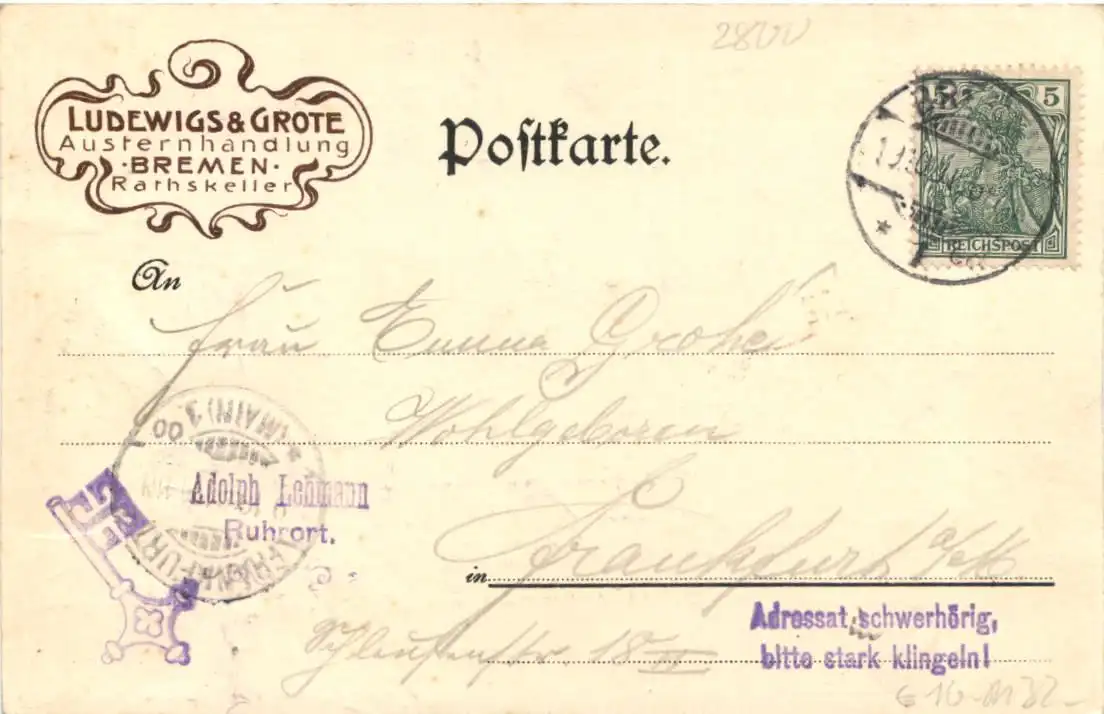 LUDEWIGS & GROTE
Austernhandlung
·BREMEN·
Rathskeller
Postkarte.
5
REICHSPOST
An
Frau Emma Grohe
Wohlgeboren
in Frankfurt a/M
Schleusenstr. 18 II
(MAIN) 3
00
FRANKFURT
Adolph Lehmann
Ruhrort.
Adressat schwerhörig,
bitte stark klingeln!